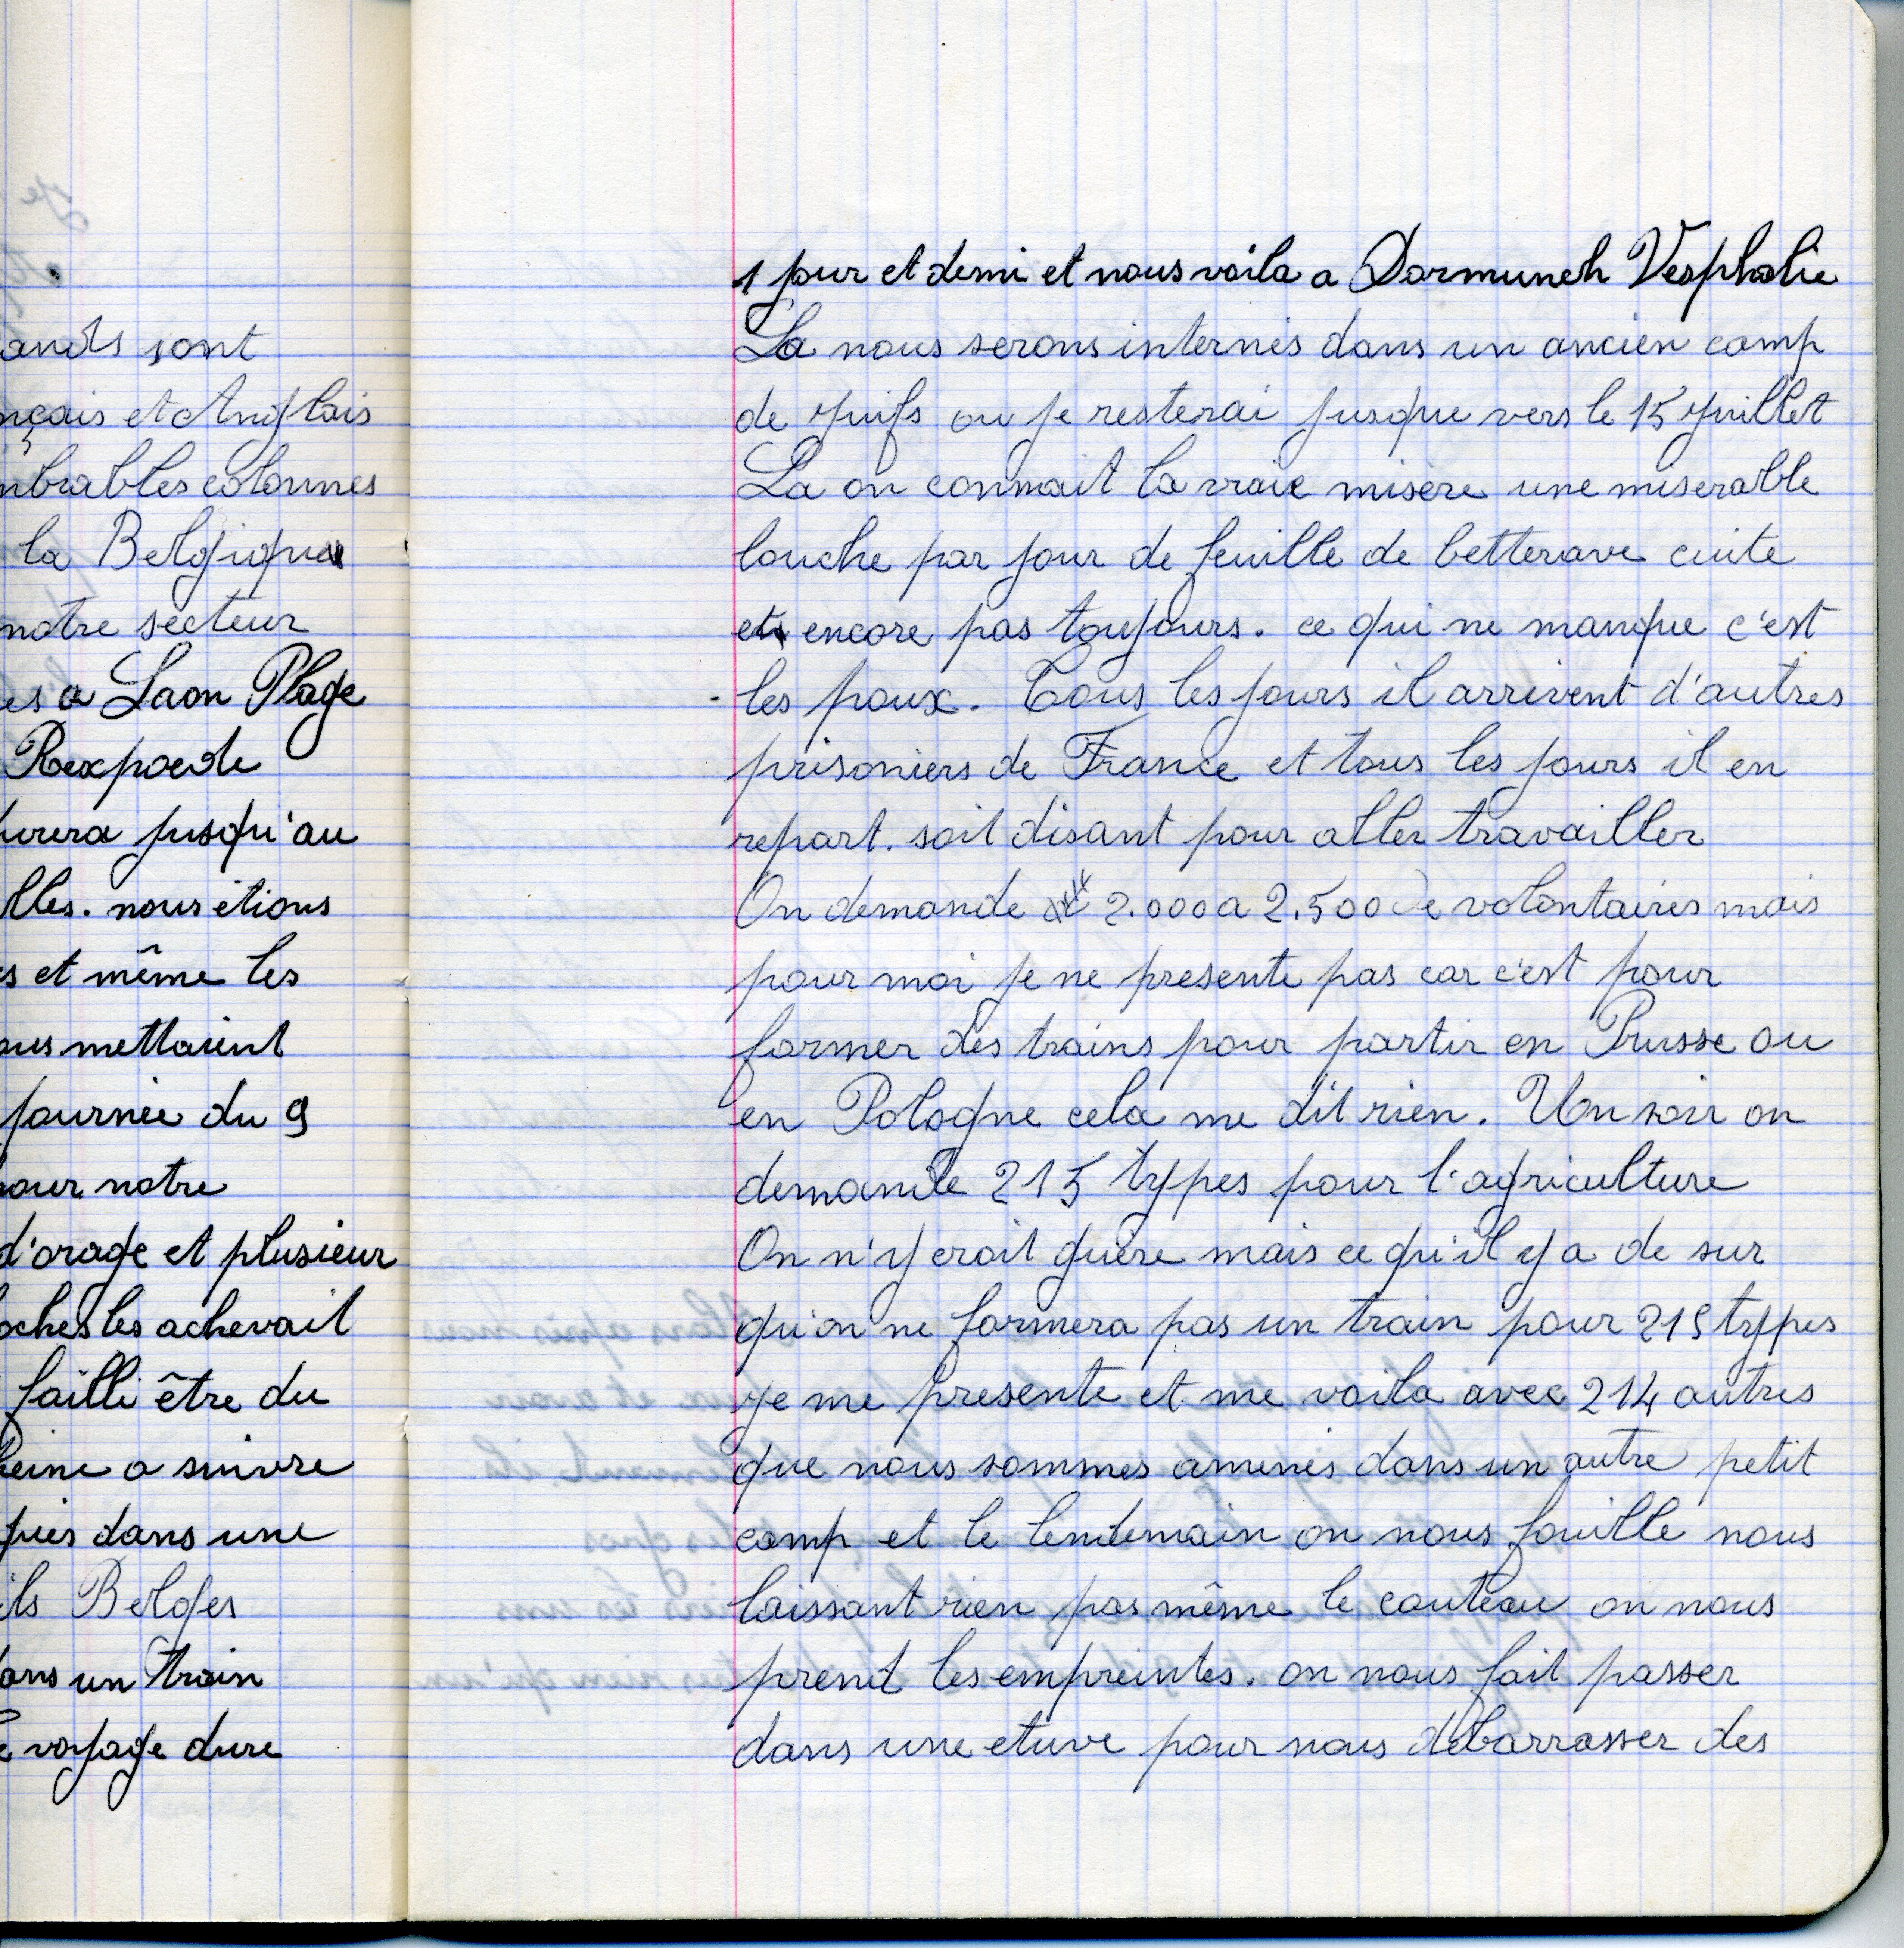 ands sont
nçais et Anglais
mbrables colonnes
la Belgique
notre secteur
es a Laon Plage
Rexpoede
urera jusqu'au
lles. nous étions
s et même les
ous mettaient
journée du 9
pour notre
d'orage et plusieur
oches les achevait
failli être du
peine a suivre
puis dans une
ils Belges
dans un train
e voyage dure
1 jour et demi et nous voila a Dormunch Vesphalie
La nous serons internés dans un ancien camp
de juifs ou je resterai jusque vers le 15 juillet
La on connait la vraie misère une miserable
louche par jour de feuille de betterave cuite
et encore pas toujours. ce qui ne manque c'est
les poux. Tous les jours il arrivent d'autres
prisoniers de France et tous les jours il en
repart. soit disant pour aller travailler
On demande 2.000 a 2.500 de volontaires mais
pour moi je ne presente pas car c'est pour
former des trains pour partir en Prusse ou
en Pologne cela me dit rien. Un soir on
demande 215 types pour l'agriculture
On n'y croit guère mais ce qu'il y a de sur
qu'on ne formera pas un train pour 215 types
je me presente et me voila avec 214 autres
que nous sommes amenés dans un autre petit
camp et le lendemain on nous fouille nous
laissant rien pas même le couteau on nous
prend les empreintes. on nous fait passer
dans une etuve pour nous débarrasser des